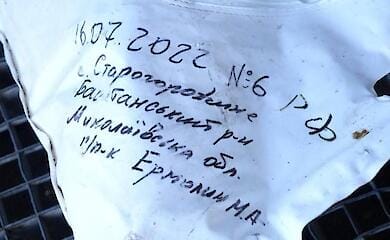 16.07.2022 №6 РФ
с. Старогороджене
Баштанський р-н
Миколаївська обл.
п/п-к Ермолин М.А.